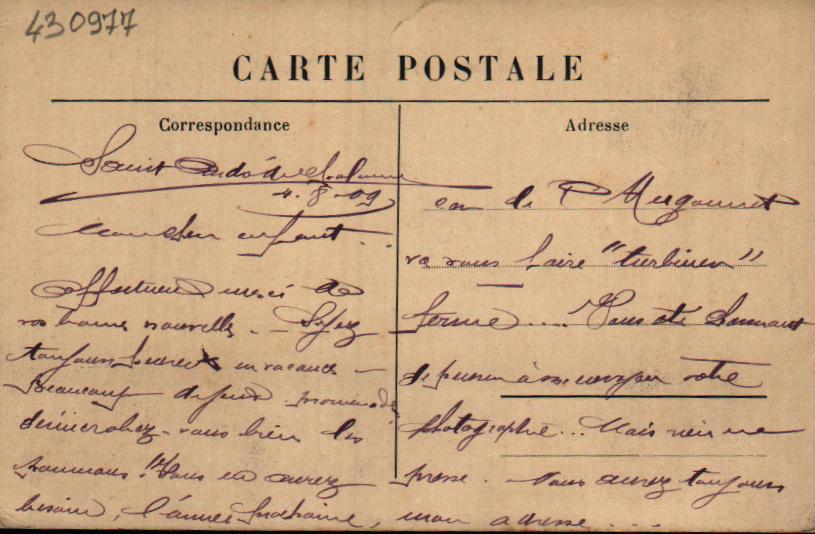 430977
CARTE POSTALE
Correspondance
Saint André de
4.8.09
Mon cher enfant...
Affectueux merci de
vos bonnes nouvelles. — Soyez
toujours heureux en vacances —
Beaucoup de promenades
bien les
poumons! Vous en aurez
besoin, l'année prochaine,
Adresse
car de P
va vous faire "turbiner"
ferme.... Vous êtes
de penser à m'envoyer votre
photographie... Mais rien ne
presse. Vous aurez toujours
mon adresse....